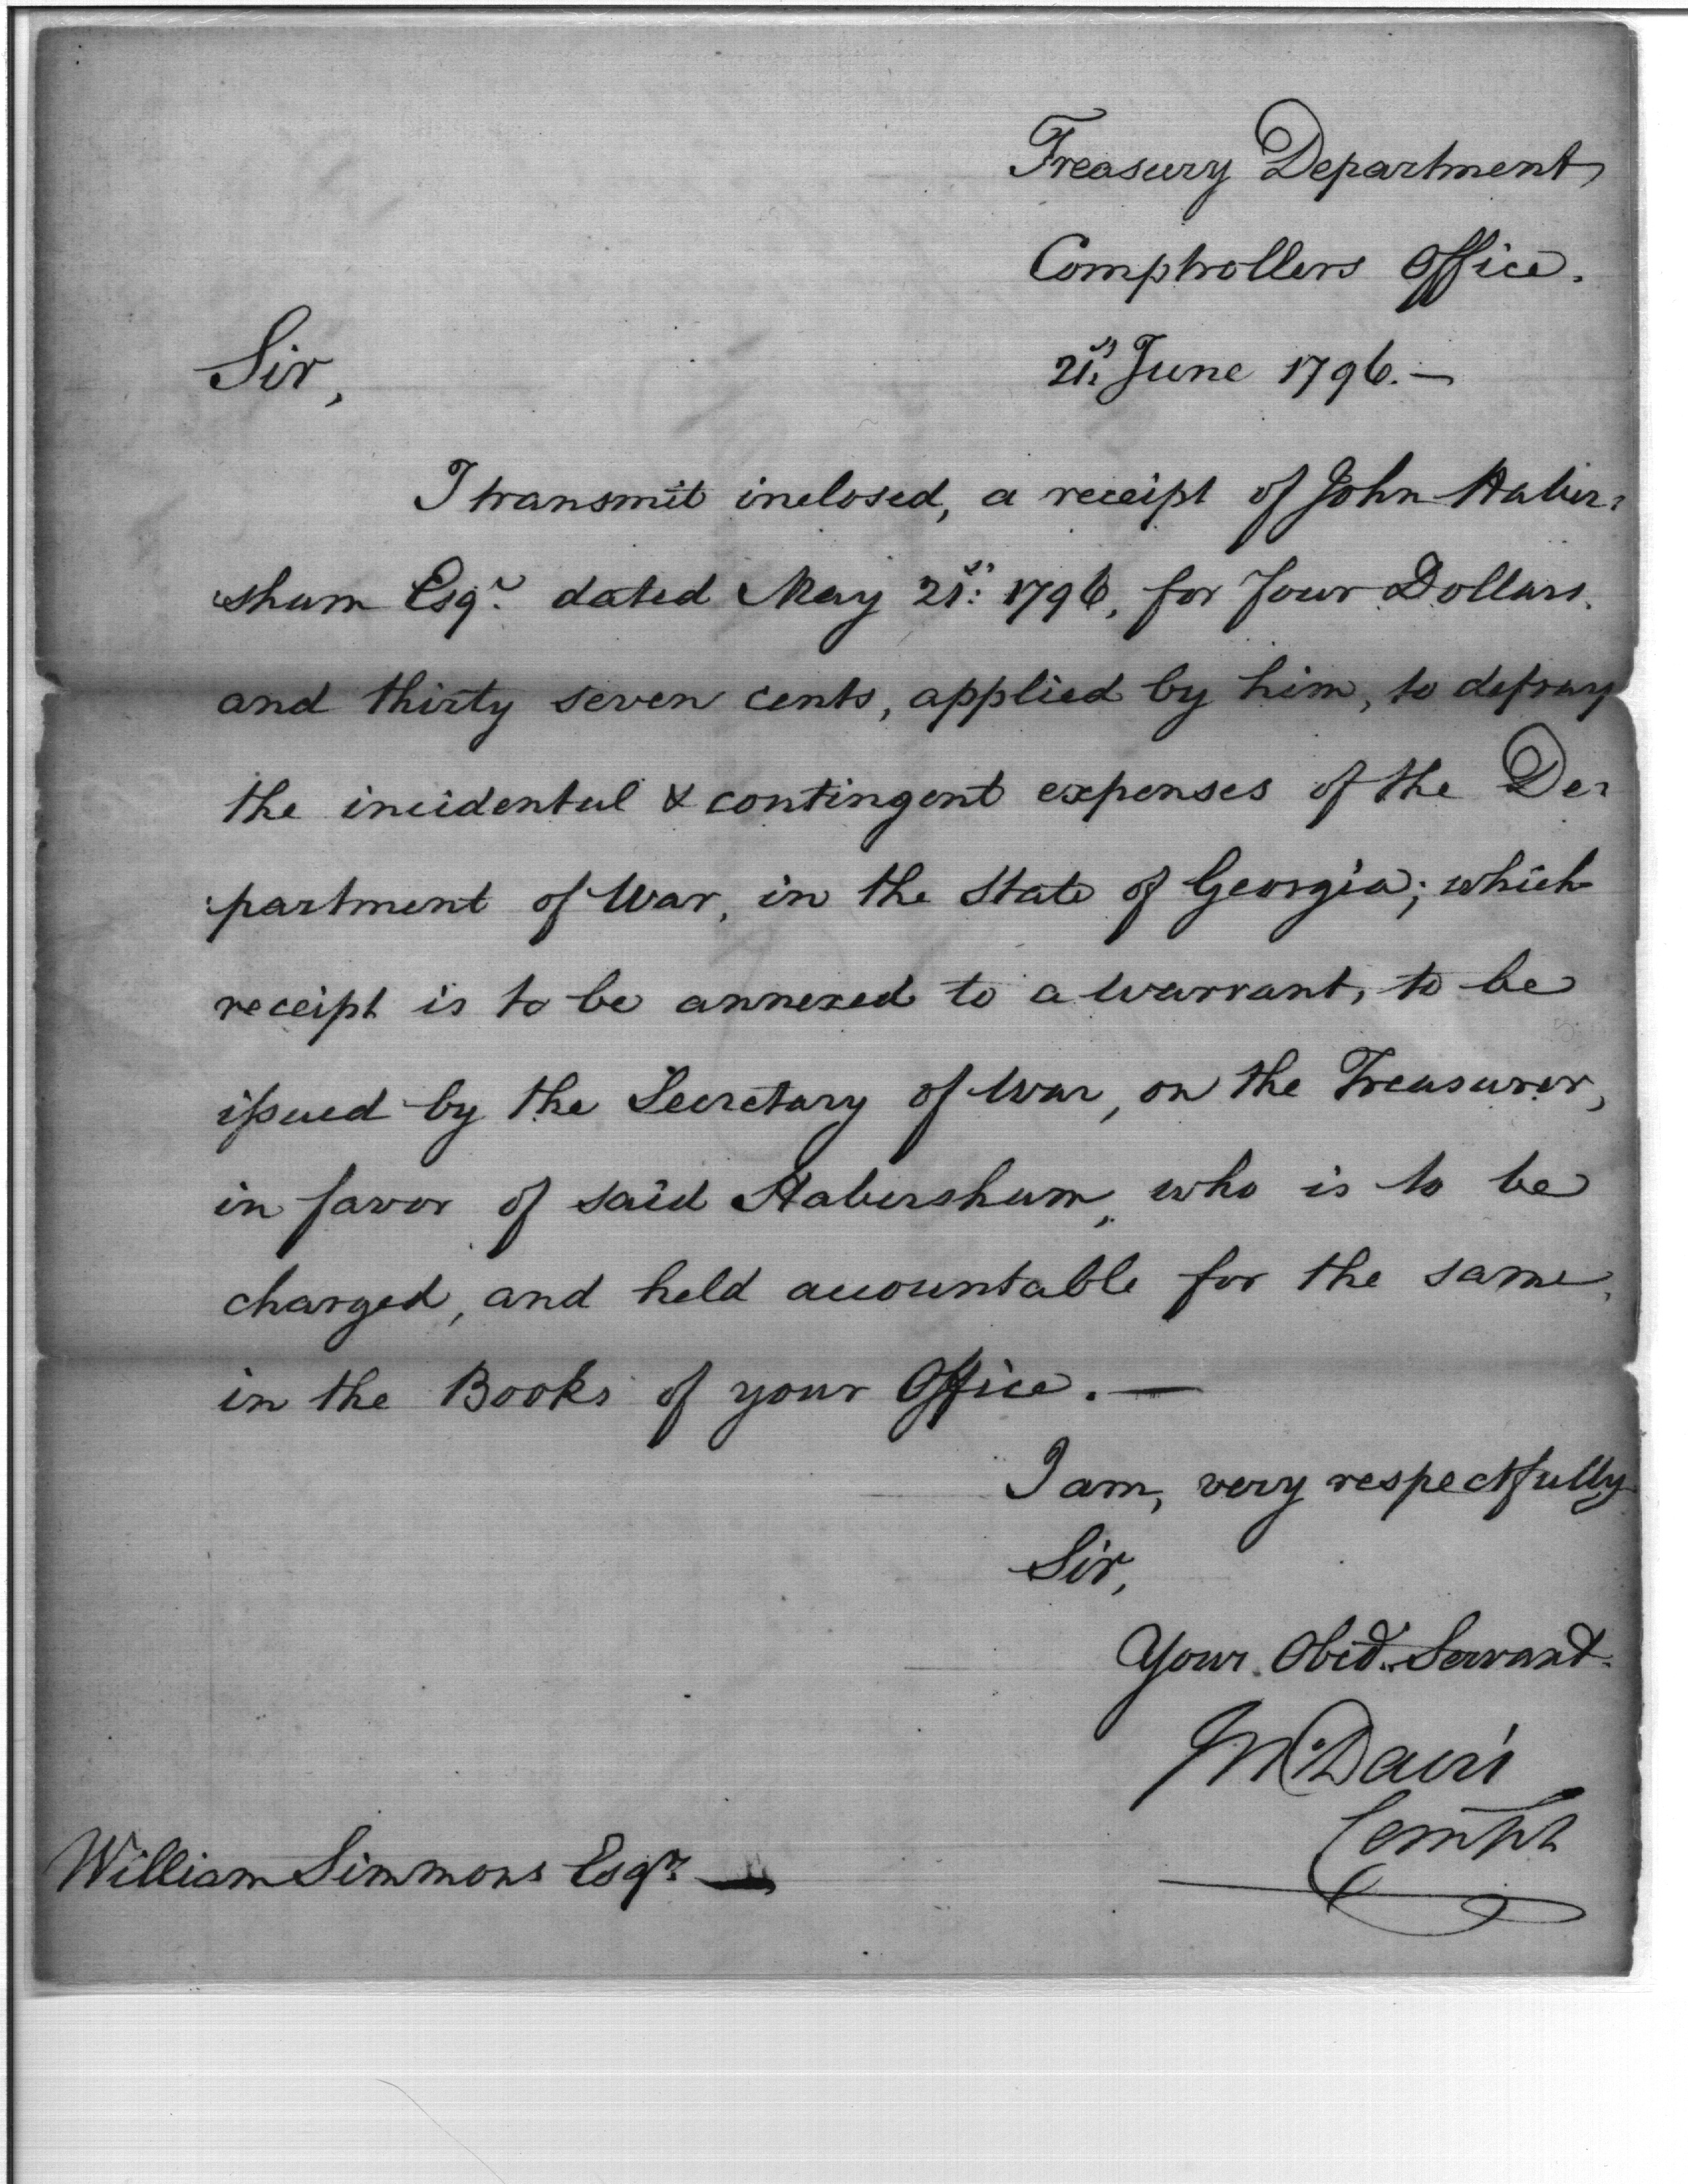 Treasury Department
Comptrollers Office.
21st June 1796.—
Sir,
I transmit inclosed, a receipt of John Haber-
sham Esqr. dated May 21st: 1796, for four Dollars
and thirty seven cents, applied by him, to defray
the incidental & contingent expenses of the De-
partment of War, in the State of Georgia; which
receipt is to be annexed to a warrant, to be
issued by the Secretary of War, on the Treasurer,
in favor of said Habersham, who is to be
charged, and held accountable for the same,
in the Books of your Office.—
I am, very respectfully
Sir,
Your Obed. Servant.
Jn Davis
Compt
William Simmons Esqr.